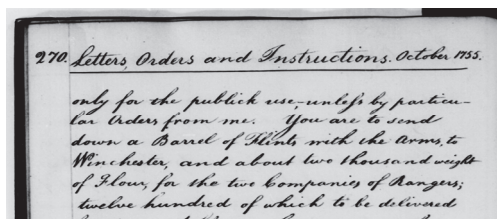 270. Letters, Orders and Instructions. October 1755.
only for the publick use, unless by particu-
lar Orders from me. You are to send
down a Barrel of Flints with the Arms, to
Winchester, and about two thousand weight
of Flour, for the two Companies of Rangers;
twelve hundred of which to be delivered